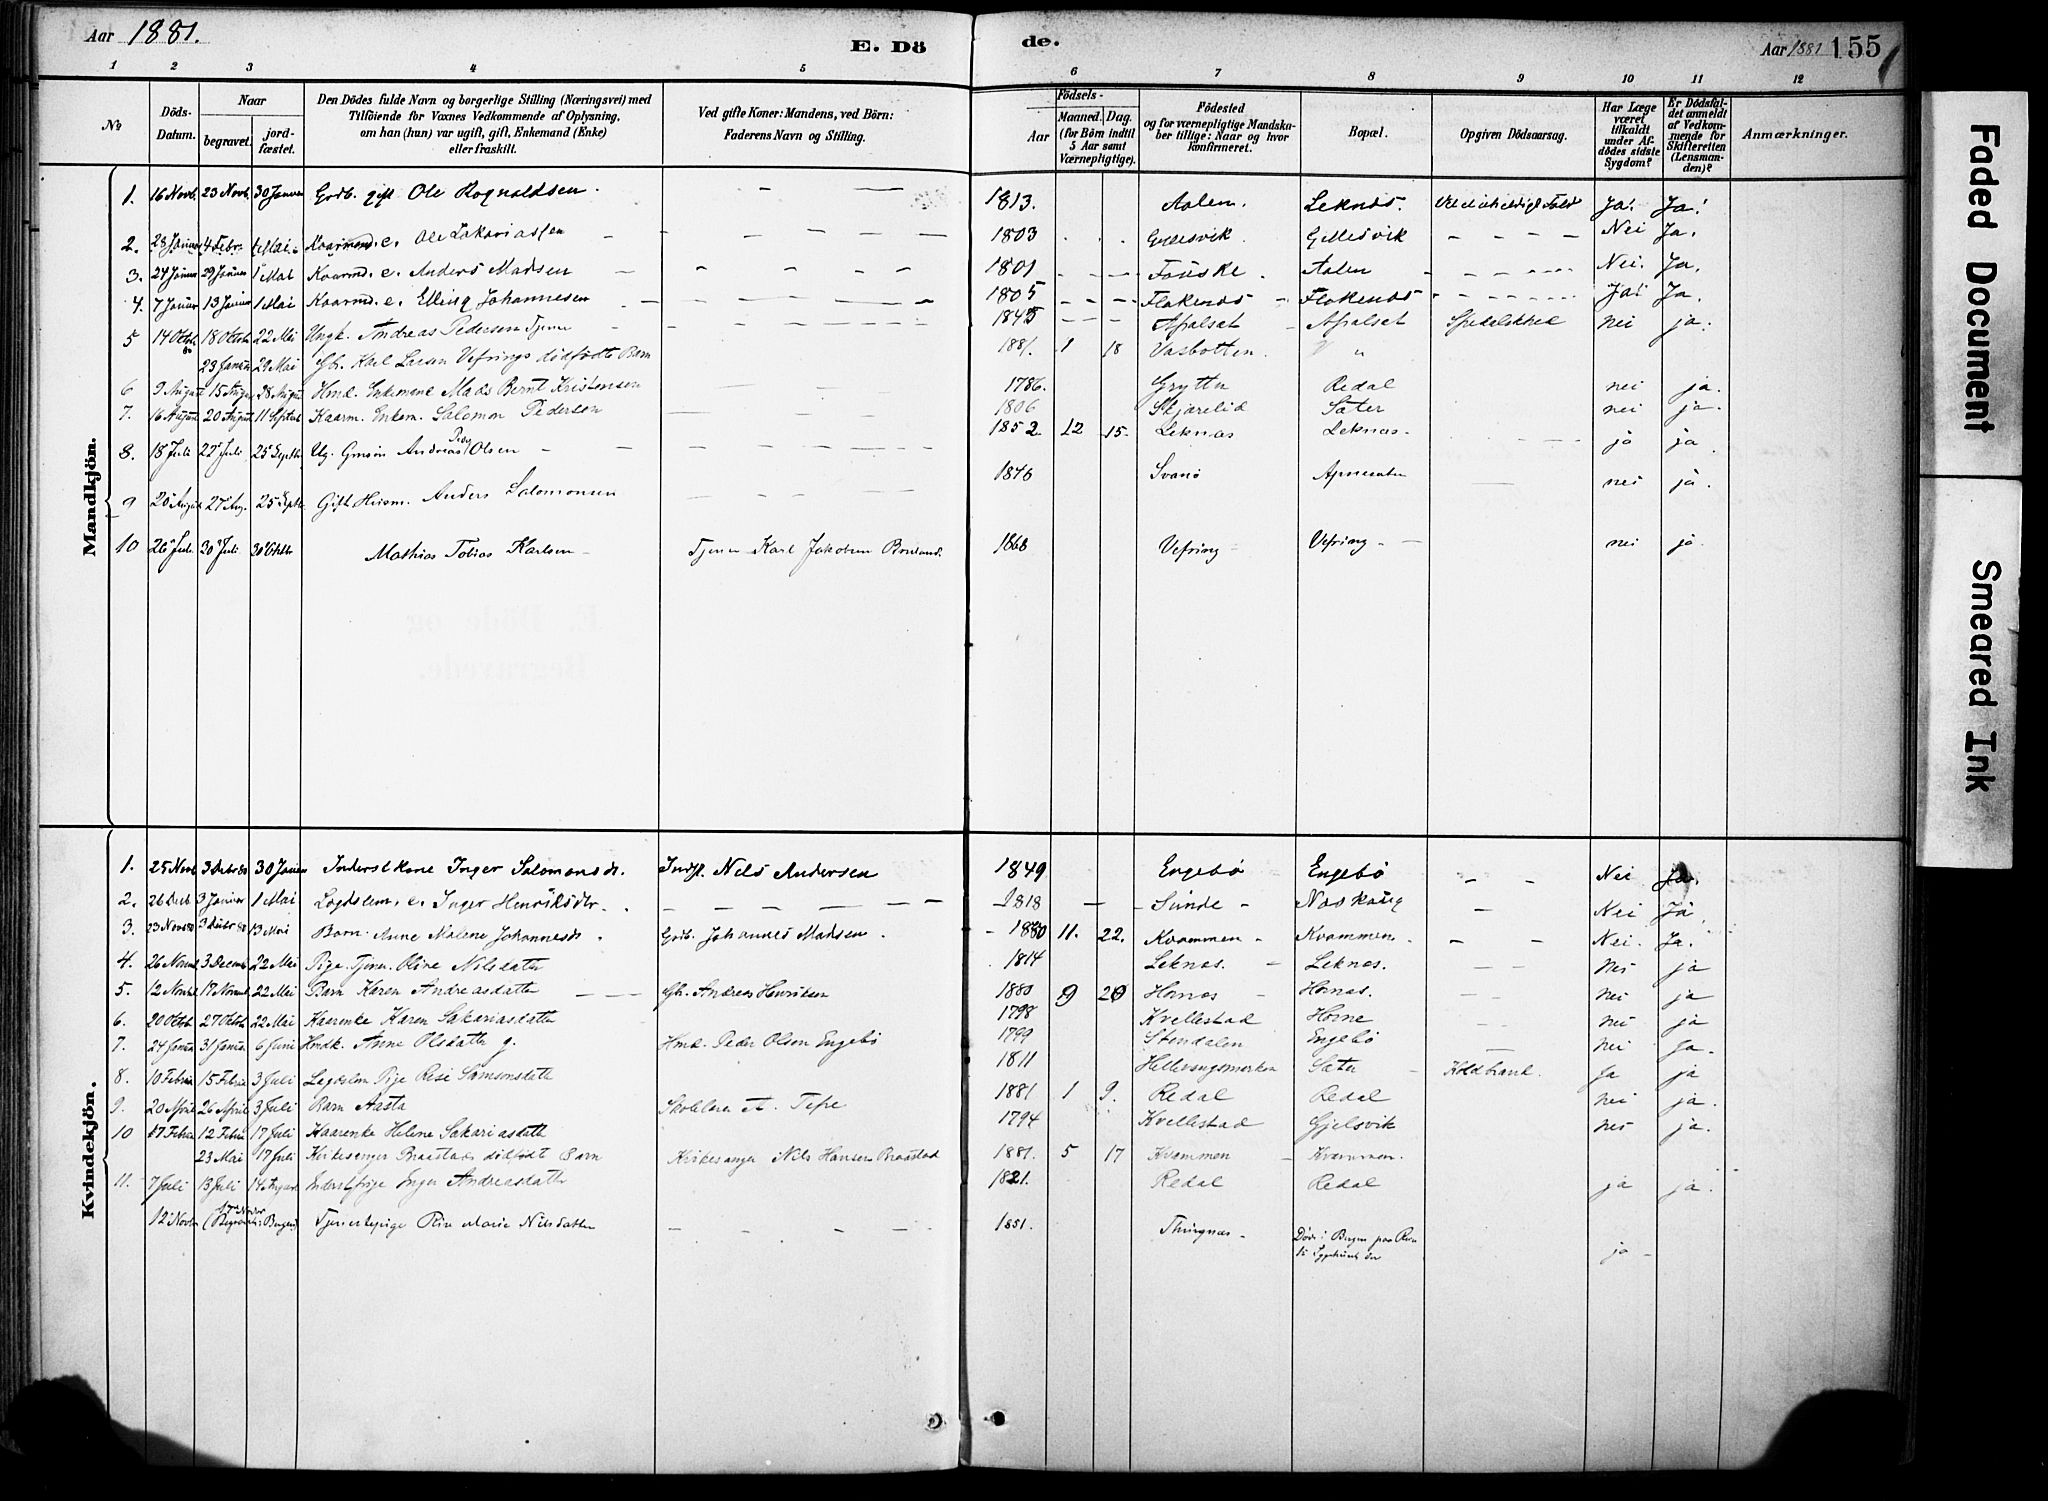 Aar 1881.
E. Döde.
Aar 1881 155
1 2 3 4 5 6 7 8 9 10 11 12
No
Döds-Datum.
Naar
begravet.
jordfæstet.
Den Dödes fulde Navn og borgerlige Stilling (Næringsvei) med
Tilföiende for Voxnes Vedkommende af Oplysning,
om han (hun) var ugift, gift, Enkemand (Enke)
eller fraskilt.
Ved gifte Koner: Mandens, ved Börn:
Faderens Navn og Stilling.
Födsels-
Aar
Maaned. Dag.
(for Börn indtil
5 Aar samt
Værnepligtige).
Födested
og for værnepligtige Mandska-
ber tillige: Naar og hvor
konfirmeret.
Bopæl.
Opgiven Dödsaarsag.
Har Læge
været
tilkaldt
under Af-
dödes sidste
Sygdom?
Er Dödsfal-
det anmeldt
af Vedkom-
mende for
Skifteretten
(Lensman-
den)?
Anmærkninger.
Mandkjön.
1. 16 Novb. 23 Novb. 30 Januar Godb. gift Ole Rognaldsen 1813. Aalen. Leknes. Ja! Ja!
2. 28 Januar 4 Febr. 1 Mai Kaarmand. e. Ole Zakariassen 1803 Gjellesvik. Gjellesvik Nei Ja.
3. 24 Januar 29 Januar 1 Mai Kaarmd. e. Anders Madsen 1801 Fauske. Aalen Nei. Ja.
4. 7 Januar 13 Januar 1 Mai Kaarmd. e. Elling Johannesen 1805 Flokenes Flokenes Ja! Ja.
5 14 Oktob 80 18 Oktob 22 Mai Ungk. Andreas Pedersen Tjener 1845 Apalset Apalset Spedalskhed nei ja.
23 Januar 29 Mai Gbr. Karl Larsen Vefrings dødfødte Barn 1881. 1 18 Vasbotten. "
6 9 August 15 August 28 August Hmd. Enkemand Mads Bernt Kristensen 1786. Grytten Redal nei ja.
7. 16 August 20 August 11 Septbr Kaarm. Enkem. Salomon Pedersen 1806 Skjærelid Sater nei ja.
8. 18 Juli 22 Juli 25 Septb. Ug. Gmsön Andreas Olsen 1852 12 15. Leknas Leknas. ja ja
9 20 August 27 Aug. 25 Septbr Gift Huusm. Anders Salomonsen 1846 Svanö nei ja.
10 26 Juli 30 Juli 30 Oktbr Mathias Tobias Karlsen Tjener Karl Jakobsen 1868 Vefring Vefring nei ja.
Kvindekjön.
1. 25 Novb 3 Debr 80 30 Januar Inderstkone Inger Salomonsdr. Indst. Nils Andersen 1849 Engebö Engebö Nei Ja.
2. 26 Decb 3 Januar 1 Mai Lægdslem. e. Inger Henriksdtr. 1818 Sunde Naskaug Nei Ja.
3. 23 Novb 80 3 Decbr 80 13 Mai Barn. Anne Malene Johannesdr. Godb. Johannes Madsen. 1880 11. 22. Kvammen Kvammen. Nei. Ja.
4. 26 Novmb 3 Decemb 22 Mai Pige. Tjener. Oline Nilsdatter 1814 Leknas. Leknas. nei ja
5. 12 Novmb 17 Novemb 22 Mai Barn Karen Andreasdatter Gb. Andreas Henriksen 1880 9 20 Hornas Hornas. nei ja
6. 20 Oktob 27 Oktob 22 Mai Kaarenke Karen Sakariasdatter 1798 Kvellestad Horne nei ja
7. 24 Januar 31 Januar 6 Juni Hmdk. Anne Olsdatter g. Hmd. Peder Olsen Engebö 1799 Stendalen Engebö nei Ja.
8. 10 Februar 15 Februar 3 Juli Lægdslem Pige Rise Samsonsdatter 1811 Sater Koldbrand. Ja ja
9. 20 April 26 April 3 Juli Barn Aasta Skolelærer A. Tefre 1881 1 9. Redal Redal nei ja.
10 7 Februar 12 Februar 17 Juli Kaarenke Helene Sakariasdatter 1794 Kvellestad Gjelsvik nei ja.
23 Mai 17 Juli Kirkesanger Braastads dödfödt Barn Kirkesanger Nils Hansen Braastad 1881. 5 17 Kvammen Kvammen.
11. 7 Juli 13 Juli 14 August Inderstpige Inger Andreasdatter 1821. Redal Redal ja ja.
12 Novbr (Begravet i Bergen) Tjenestepige Marie Nilsdatter 1851. Thingnes Döde i Bergen paa ja
Faded Document
Smeared Ink